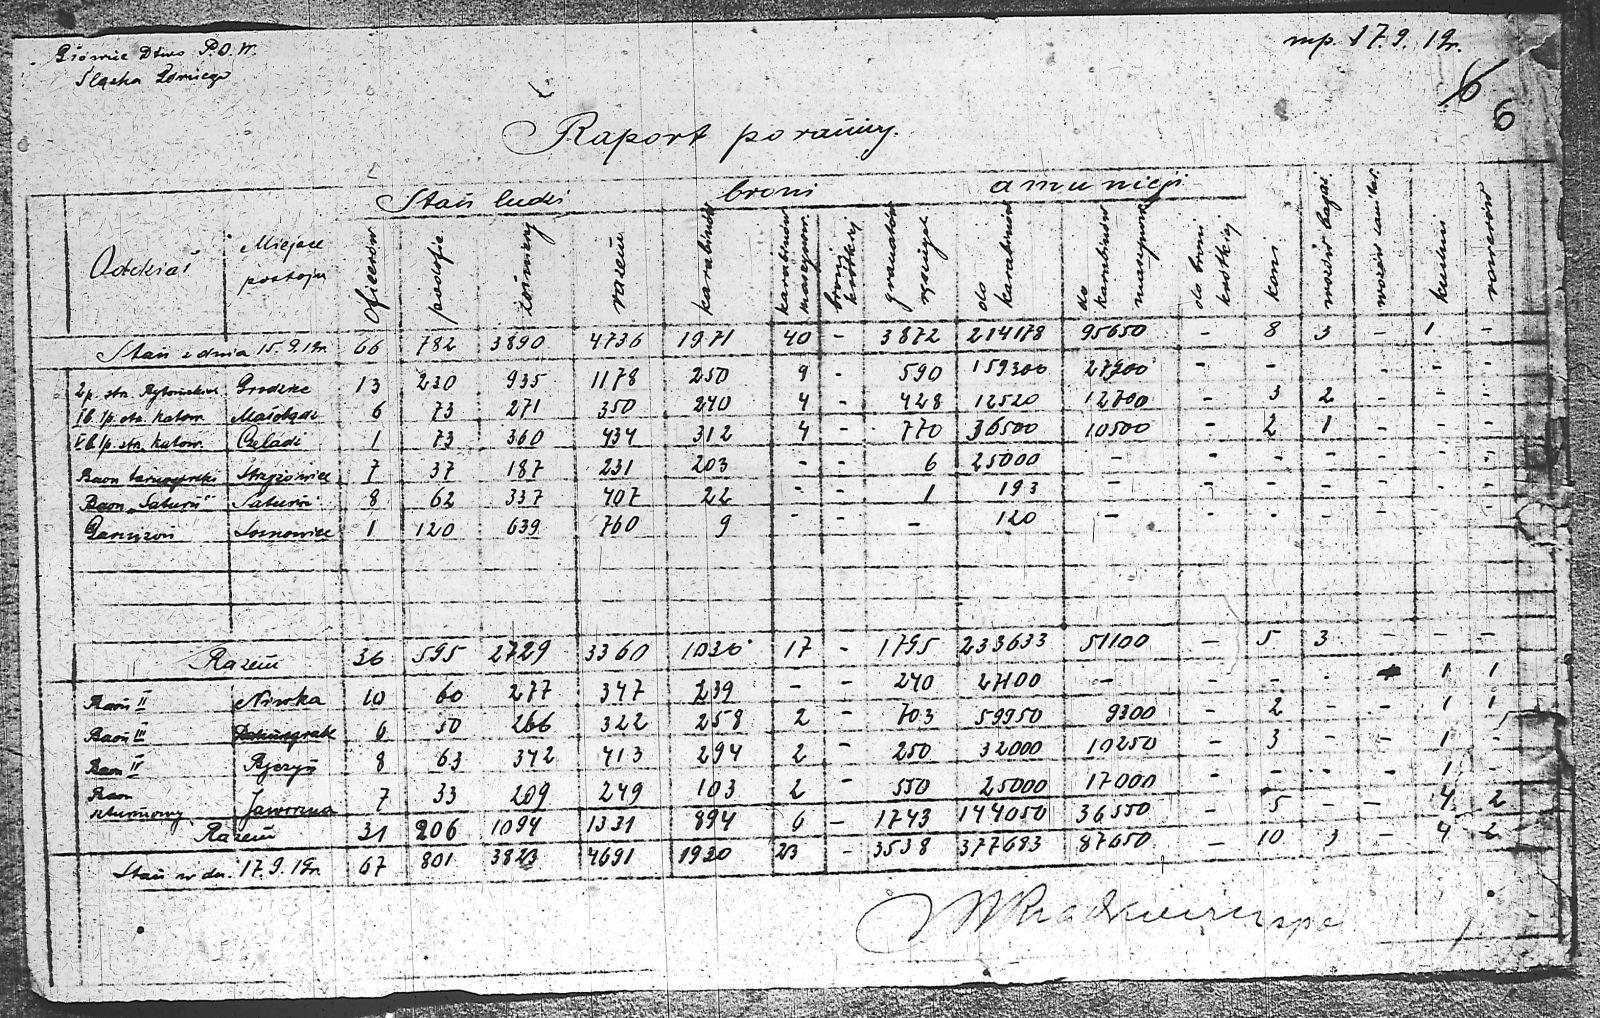 Główne Dtwo P.O.W.
Śląska Górnego
mp. 17.9.19r.
6
6
Raport poranny.
Oddział
Miejsce postoju
Stan ludzi
broni
amunicji
oficerów
podofic.
żołnierzy
razem
karabinów
karabinów maszynow.
broni krótkiej
granatów ręcznych
do karabinów
do karabinów maszynow.
do broni krótkiej
koni
wozów bagaż.
wozów sanitar.
kuchni
rowerów
Stan z dnia 15.9.19r. 66 782 3890 4736 1971 40 - 3872 214178 95650 - 8 3 - 1 -
2p. strz. Bytomskich Grodziec 13 230 935 1178 250 9 - 590 159300 27900 - - - - - -
I b. 1p. strz. Katow. Małobądz 6 73 271 350 240 4 - 428 12520 12700 - 3 2 - - -
II b. 1p. strz. Katow. Czeladź 1 73 360 434 312 4 - 770 36500 10500 - 2 1 - - -
Baon tarnogórski Strzyżowice 7 37 187 231 203 - - 6 25000 - - - - - - -
Baon „Saturn" Saturn 8 62 337 407 22 - - 1 193 - - - - - - -
Garnizon Sosnowiec 1 120 639 760 9 - - - 120 - - - - - - -
Razem 36 595 2729 3360 1036 17 - 1795 233633 51100 - 5 3 - - -
Baon II Niwka 10 60 277 347 239 - - 240 27100 - - - - 1 1
Baon III 6 50 266 322 258 2 - 703 59950 9300 - 2 - - 1 1
Baon IV 8 63 342 413 294 2 - 250 32000 10250 - 3 - - 1 -
Baon szturmowy Jaworzno 7 33 209 249 103 2 - 550 25000 17000 - - - - 1 -
Razem 31 206 1094 1331 894 6 - 1743 144050 36550 - 5 - - 4 2
Stan w dn. 17.9.19r. 67 801 3823 4691 1930 23 - 3538 377683 87650 - 10 3 - 4 2